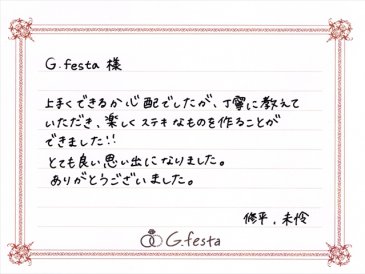 G.festa 様
上手くできるか心配でしたが、丁寧に教えて
いただき、楽しくステキなものを作ることが
できました!!
とても良い思い出になりました。
ありがとうございました。
修平、未怜
G.festa